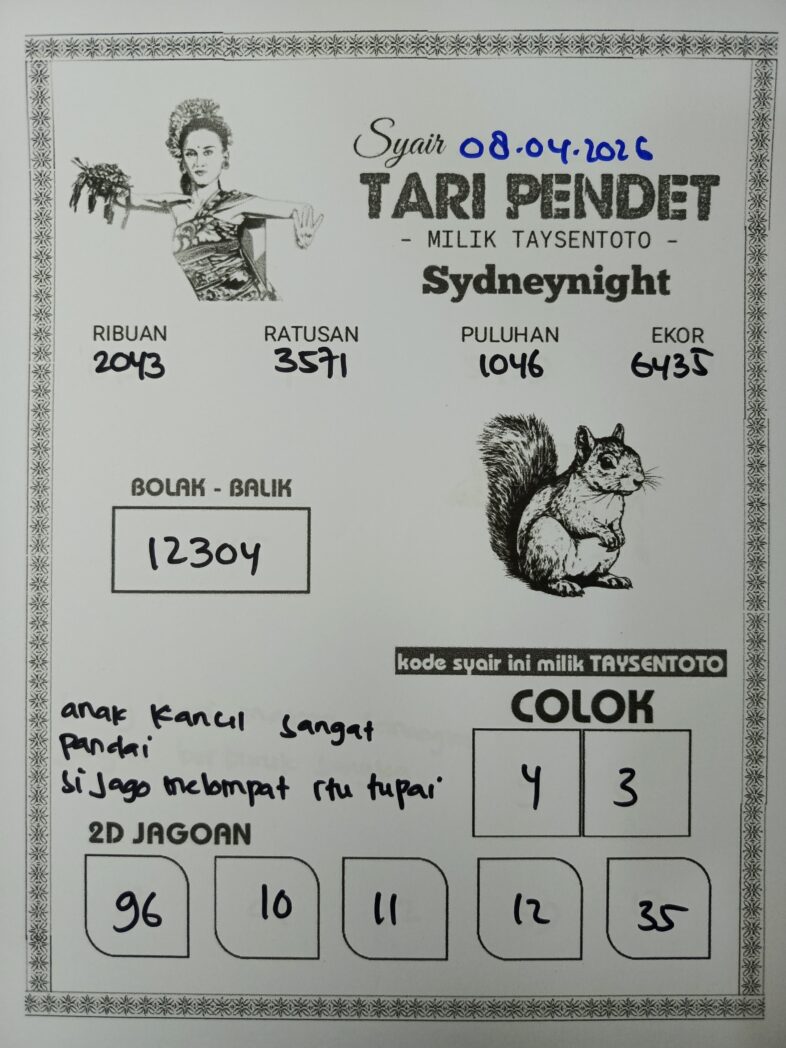 Syair 08.04.2026
TARI PENDET
- MILIK TAYSENTOTO -
Sydneynight
RIBUAN RATUSAN PULUHAN EKOR
2043 3571 1046 6435
BOLAK - BALIK
12304
kode syair ini milik TAYSENTOTO
COLOK
4 3
anak kancil sangat
pandai
si jago melompat itu tupai
2D JAGOAN
96 10 11 12 35